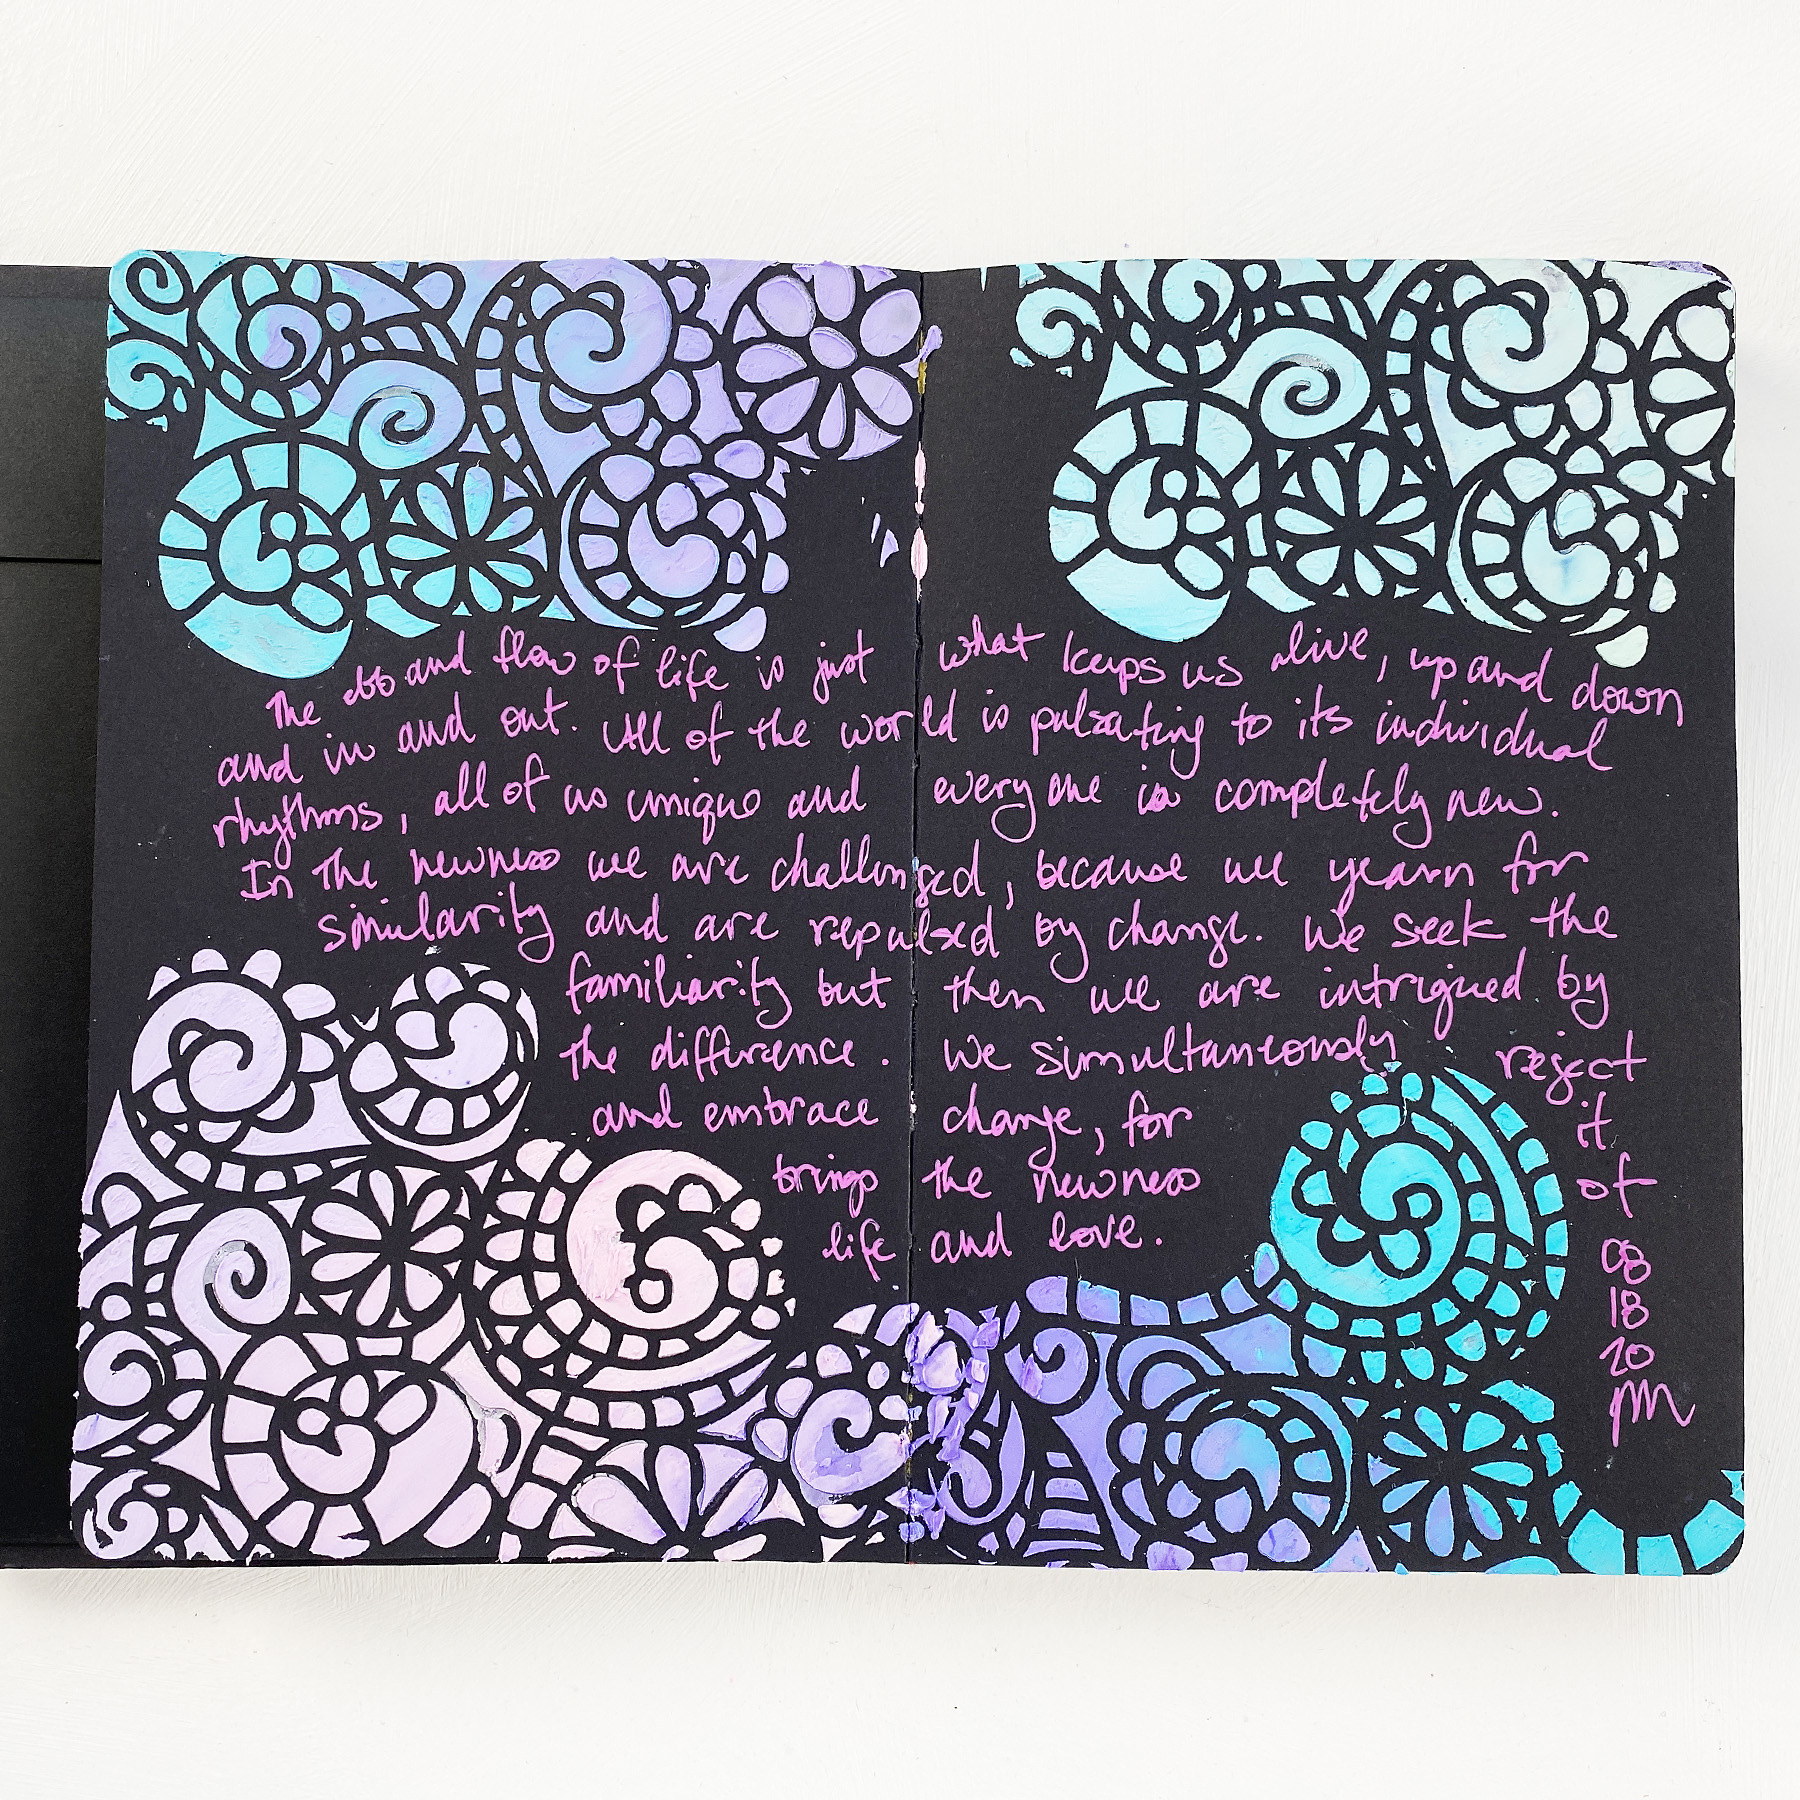 The ebb and flow of life is just what keeps us alive, up and down
and in and out. All of the world is pulsating to its individual
rhythms, all of us unique and everyone is completely new.
In the newness we are challenged, because we yearn for
similarity and are repulsed by change. We seek the
familiarity but then we are intrigued by
the difference. We simultaneously reject
and embrace change, for it
brings the newness of
life and love.
08
18
20